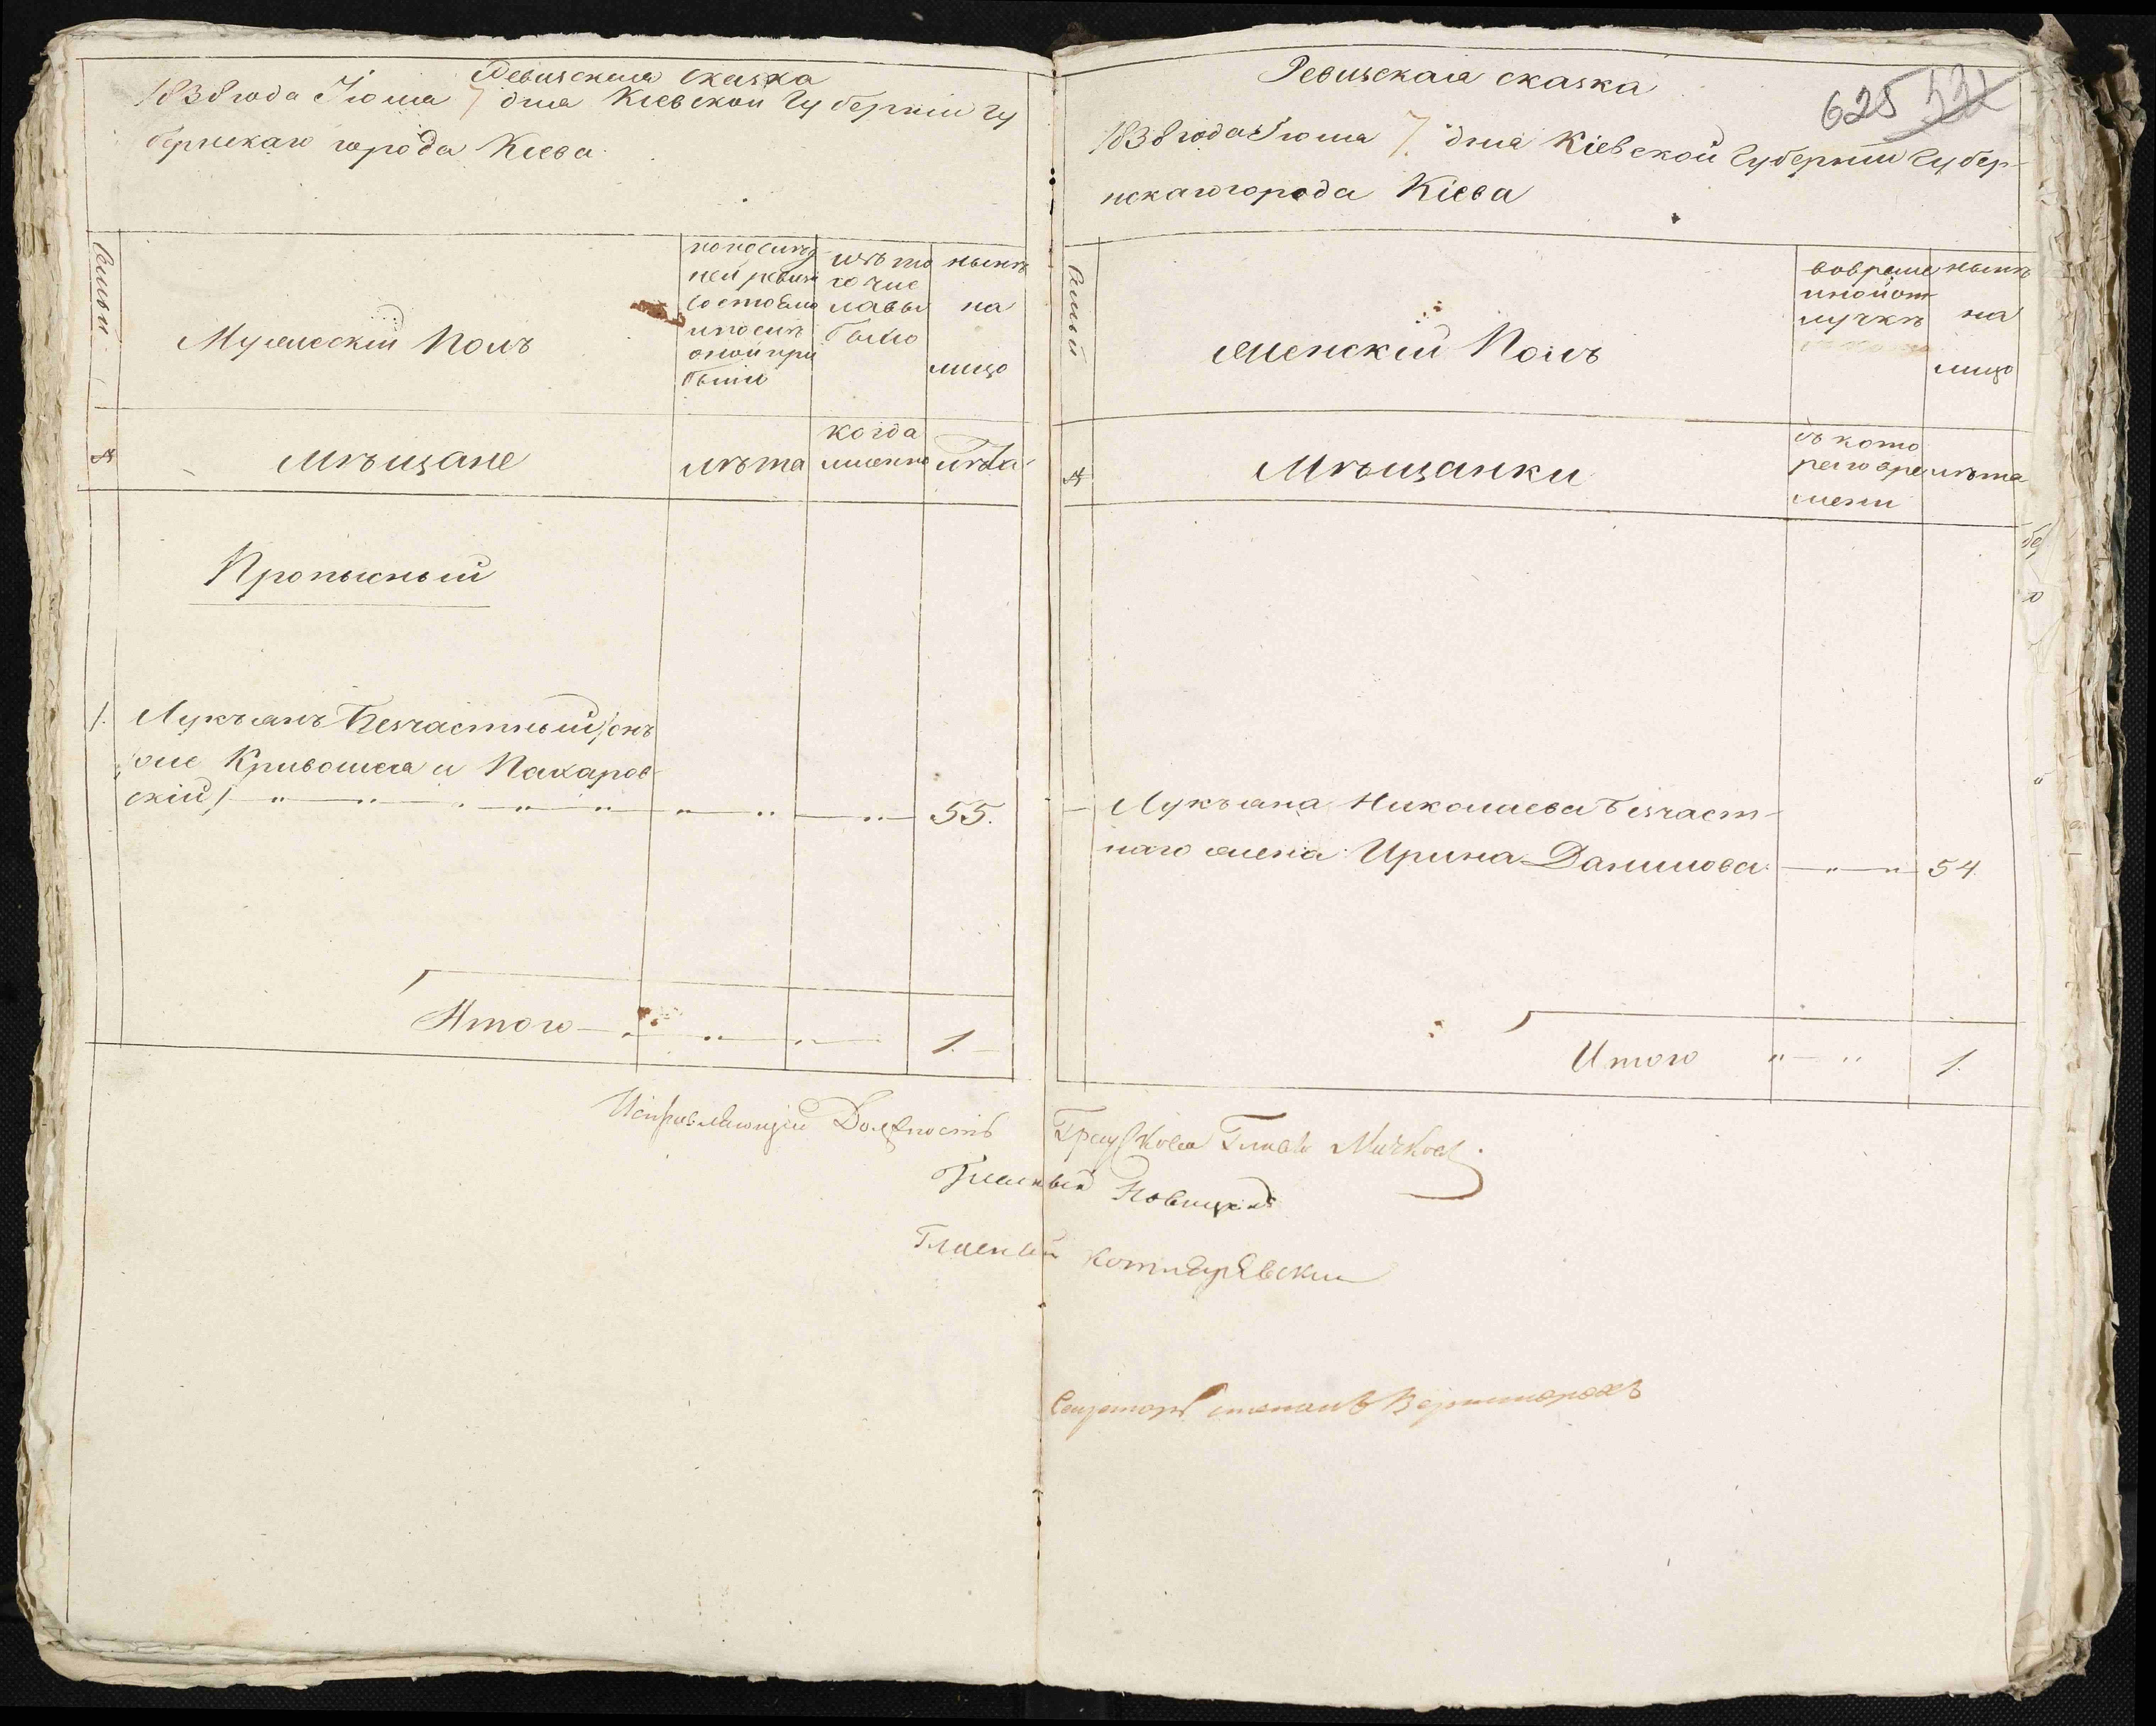 Ревизская сказка
1838 года Июля 7 дня Кіевской Губерніи Гу
бернскаго города Кіева
Семьи
Мужескій Полъ
по послѣд
ней ревизіи
состояло
и послѣ
оной при
были
изъ то
го чис
ла выбыло
нынѣ
на
лицо
№
Мѣщане
лѣта
когда
именно
лѣта
Прописный
1. Лукъянъ Безчастный /онъ
же Кривошея и Макаров
скій/ 55.
Итого 1.
Ревизская сказка
625
1838 года Июля 7. дня Кіевской Губерніи Губер-
нскаго города Кіева
Семьи
Женскій Полъ
во време
нной от
лучкѣ
нынѣ
на
лицо
№
Мѣщанки
съ кото
раго вре
мени
лѣта
Лукъяна Николаева Безчаст-
наго жена Ирина Данилова 54.
Итого 1.
Исправляющій Должность
Гласный Новицкій
Гласный Котляревскій
Степанъ